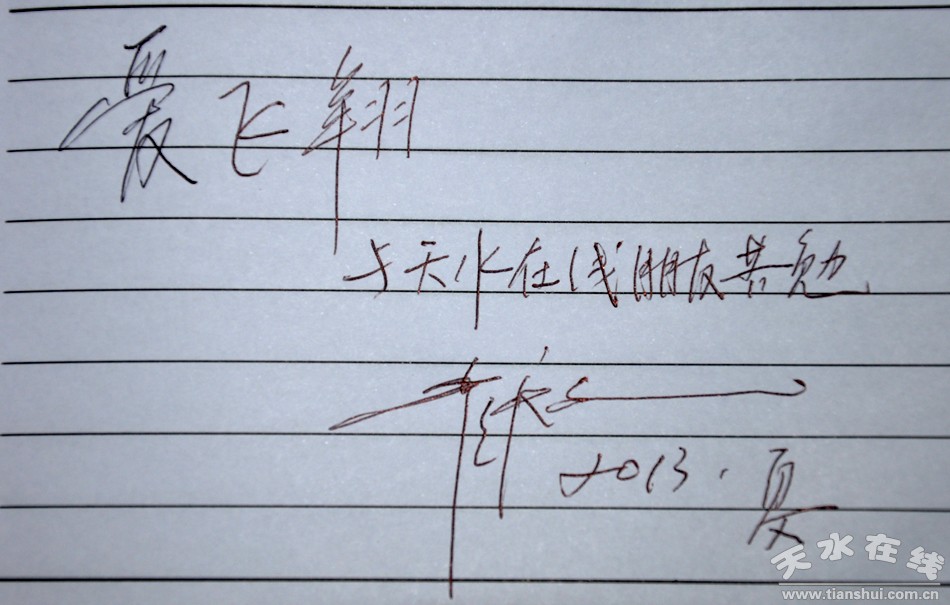 爱飞翔
与天水在线朋友共勉
2013.夏
天水在线
www.tianshui.com.cn